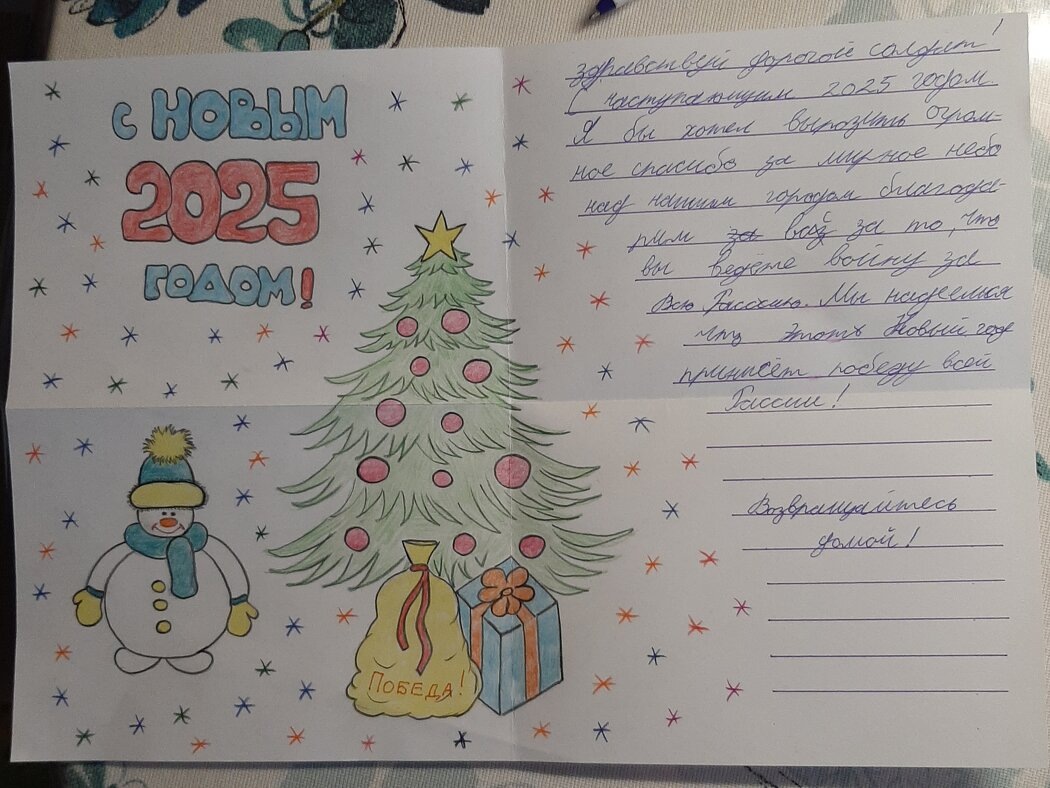 С НОВЫМ
2025
ГОДОМ!
ПОБЕДА!
Здравствуй дорогой солдат!
С наступающим 2025 годом
Я бы хотел вырозить огром-
ное спасибо за мирное небо
над нашим городом благода-
рим за вас за то, что
вы ведёте войну за
Всю Рассию. Мы надеемся
что этоть Новый год
принисёт победу всей
Рассии!
Возвращайтесь
домой!